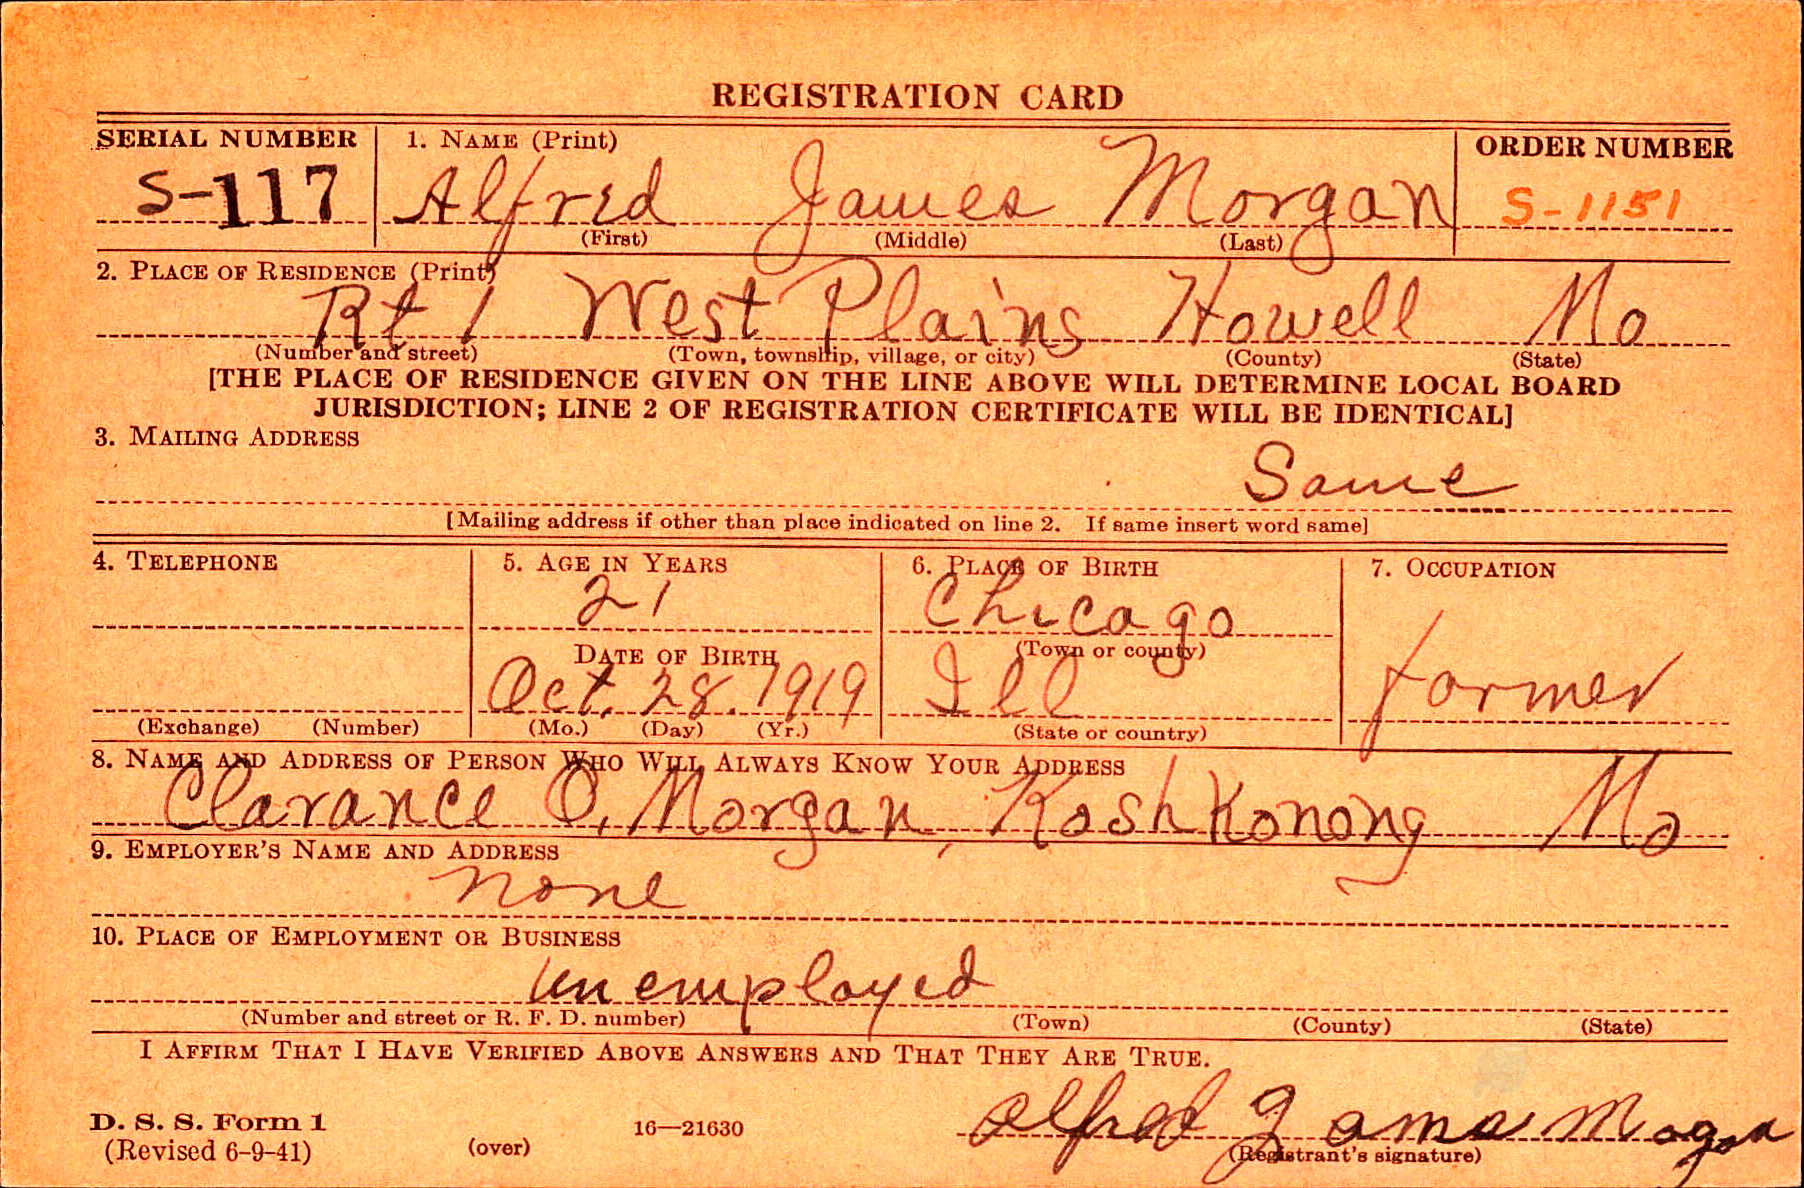 REGISTRATION CARD
SERIAL NUMBER 1. NAME (Print) ORDER NUMBER
S-117 Alfred James Morgan S-1151
(First) (Middle) (Last)
2. PLACE OF RESIDENCE (Print)
Rt 1 West Plains Howell Mo
(Number and street) (Town, township, village, or city) (County) (State)
[THE PLACE OF RESIDENCE GIVEN ON THE LINE ABOVE WILL DETERMINE LOCAL BOARD
JURISDICTION; LINE 2 OF REGISTRATION CERTIFICATE WILL BE IDENTICAL]
3. MAILING ADDRESS
Same
[Mailing address if other than place indicated on line 2. If same insert word same]
4. TELEPHONE 5. AGE IN YEARS 6. PLACE OF BIRTH 7. OCCUPATION
21 Chicago
DATE OF BIRTH (Town or county)
Oct. 28. 1919 Ill farmer
(Exchange) (Number) (Mo.) (Day) (Yr.) (State or country)
8. NAME AND ADDRESS OF PERSON WHO WILL ALWAYS KNOW YOUR ADDRESS
Clarance O. Morgan, Koshkonong Mo
9. EMPLOYER'S NAME AND ADDRESS
none
10. PLACE OF EMPLOYMENT OR BUSINESS
unemployed
(Number and street or R. F. D. number) (Town) (County) (State)
I AFFIRM THAT I HAVE VERIFIED ABOVE ANSWERS AND THAT THEY ARE TRUE.
D. S. S. Form 1 16—21630 Alfred James Mogan
(Revised 6-9-41) (over) (Registrant's signature)